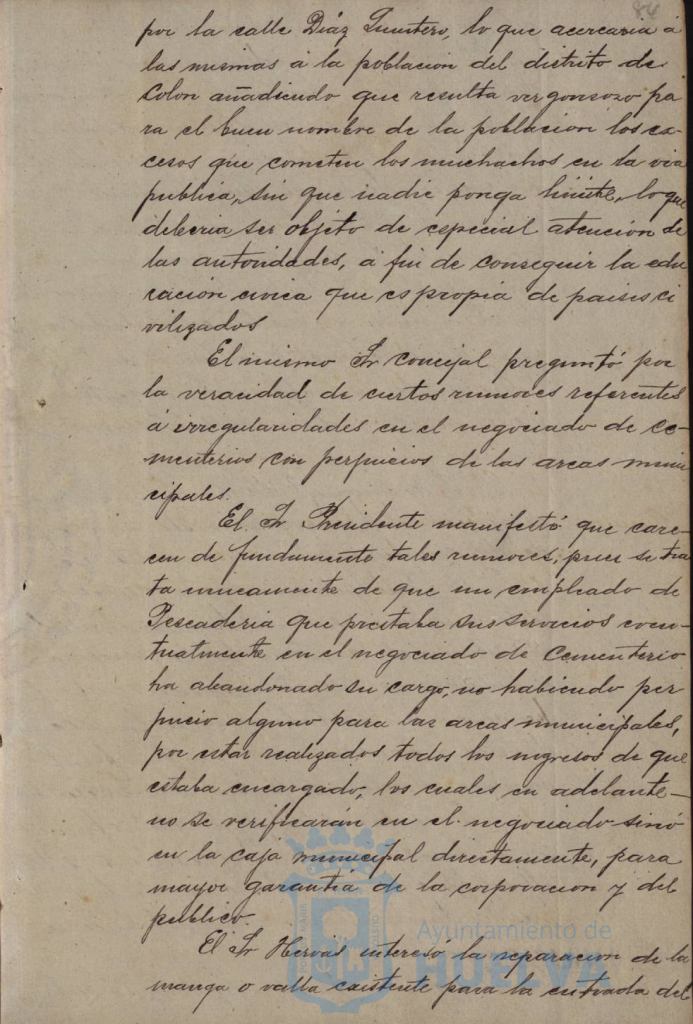 84
por la calle Diáz Quintero, lo que acercaria á
las mismas á la población del distrito de
Colon añadiendo que resulta vergonsozo pa
ra el buen nombre de la población los ex-
cesos que cometen los muchachos en la via
publica, sin que nadie ponga limite, lo que
deberia ser objeto de especial atención de
las autoridades, á fin de conseguir la edu
cación civica que es propia de paises ci
vilizados
El mismo Sr concejal preguntó por
la veracidad de ciertos rumores referentes
á irregularidades en el negociado de Ce-
menterios con perjuicios de las arcas muni
cipales.
El Sr Presidente manifestó que care-
cen de fundamento tales rumores, pues se tra
ta unicamente de que un empleado de
Pescaderia que prestaba sus servicios even-
tualmente en el negociado de Cementerio
ha abandonado su cargo, no habiendo per
juicio alguno para las arcas municipales,
por estar realizados todos los ingresos de que
estaba encargado, los cuales en adelante-
no se verificarán en el negociado sinó
en la caja municipal directamente, para
mayor garantiá de la corporacion y del
publico.
El Sr Hervás interesó la reparacion de la
manga o valla existente para la entrada del
Ayuntamiento de
HUELVA